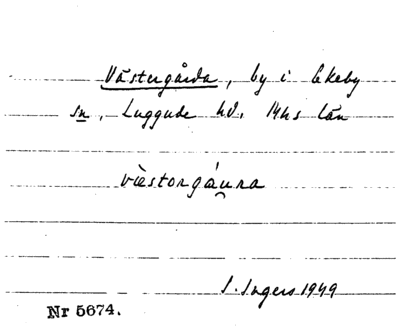 Västergårda, by i Ekeby
sn, Luggude hd. Mhs län
væstorgáu̯ra
I. Ingers 1949
Nr 5674.